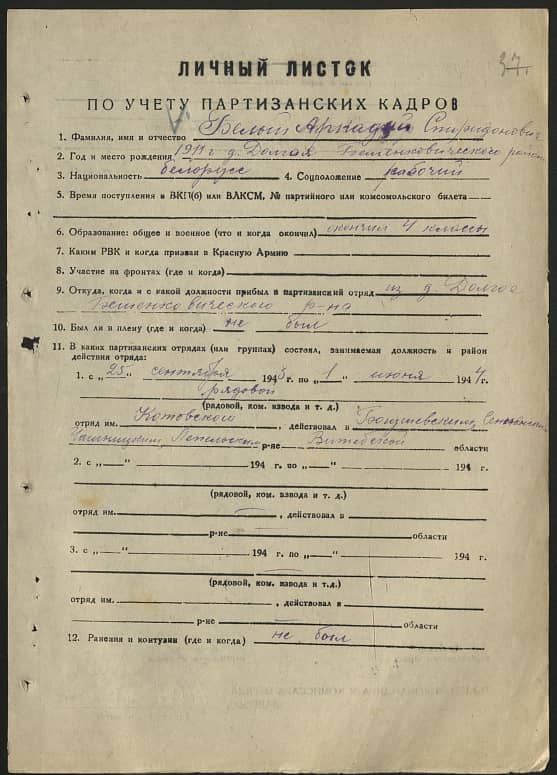 37.
ЛИЧНЫЙ ЛИСТОК
ПО УЧЕТУ ПАРТИЗАНСКИХ КАДРОВ
1. Фамилия, имя и отчество Белый Аркадий Спиридонович
2. Год и место рождения 1911 г д. Долгая Бешенковического района
3. Национальность белорусс 4. Соцположение рабочий
5. Время поступления в ВКП(б) или ВЛКСМ, № партийного или комсомольского билета
6. Образование: общее и военное (что и когда окончил) окончил 4 классы
7. Каким РВК и когда призван в Красную Армию
8. Участие на фронтах (где и когда)
9. Откуда, когда и с какой должности прибыл в партизанский отряд из д. Долгое
Бешенковического р-на
10. Был ли в плену (где и когда) не был
11. В каких партизанских отрядах (или группах) состоял, занимаемая должность и район
действия отряда:
1. с „25" сентября 1943 г. по „1" июня 1944 г.
рядовой
(рядовой, ком. взвода и т. д.)
отряд им. Котовского, действовал в
Чашницким, Лепельским р-не Витебской области
2. с „—" 194 г. по „—" 194 г.
(рядовой, ком. взвода и т. д.)
отряд им. , действовал в
р-не области
3. с „—" 194 г. по „—" 194 г.
(рядовой, ком. взвода и т.д.)
отряд им. , действовал в
р-не области
12. Ранения и контузии (где и когда) не был